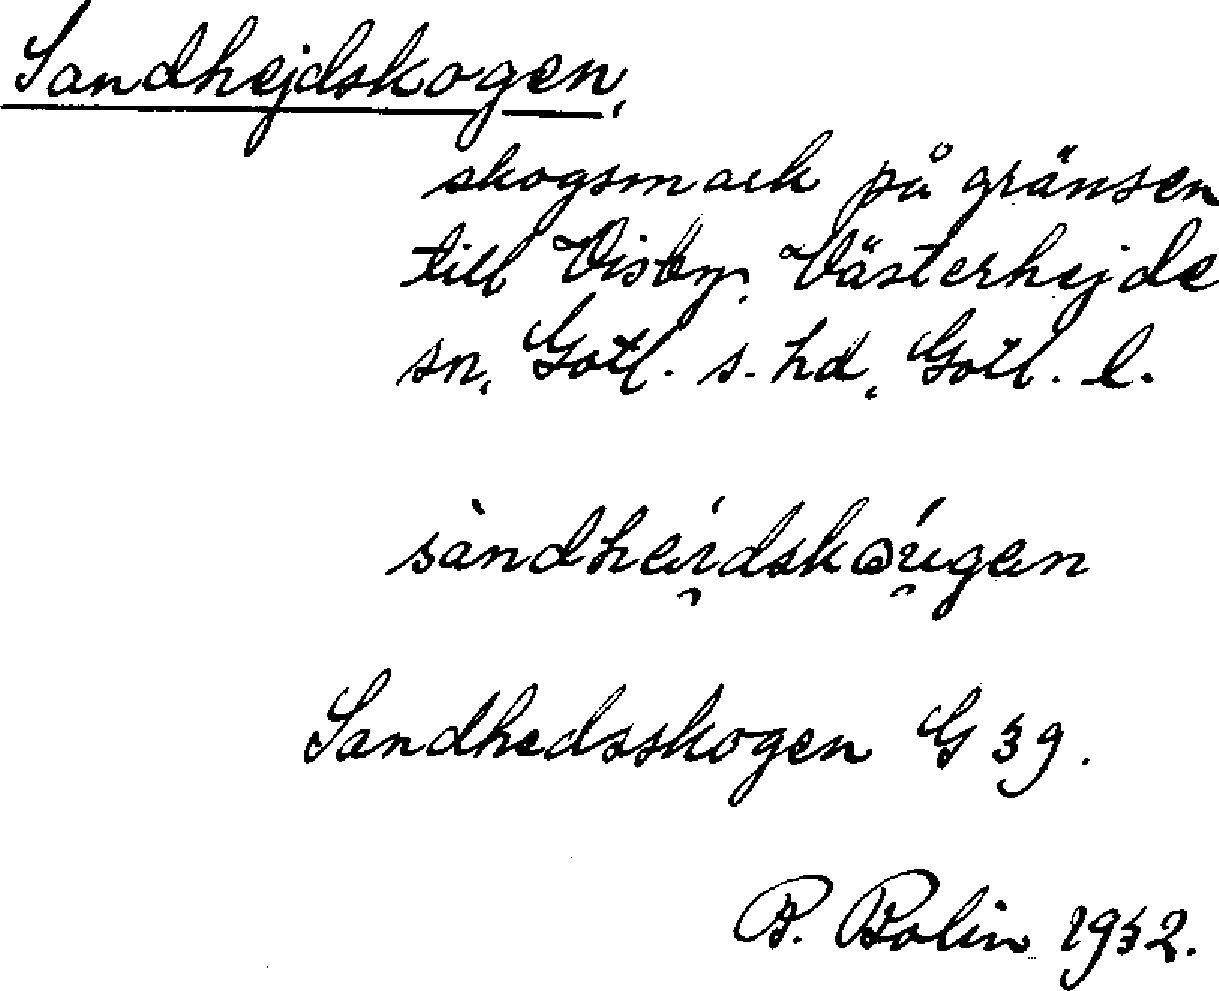 Sandhejdskogen,
skogsmark på gränsen
till Visby, Västerhejde
sn, Gotl. s. hd, Gotl. l.
sàndhei̯dskǝ́u̯gǝn
Sandhedsskogen G 39.
B. Bolin 1932.